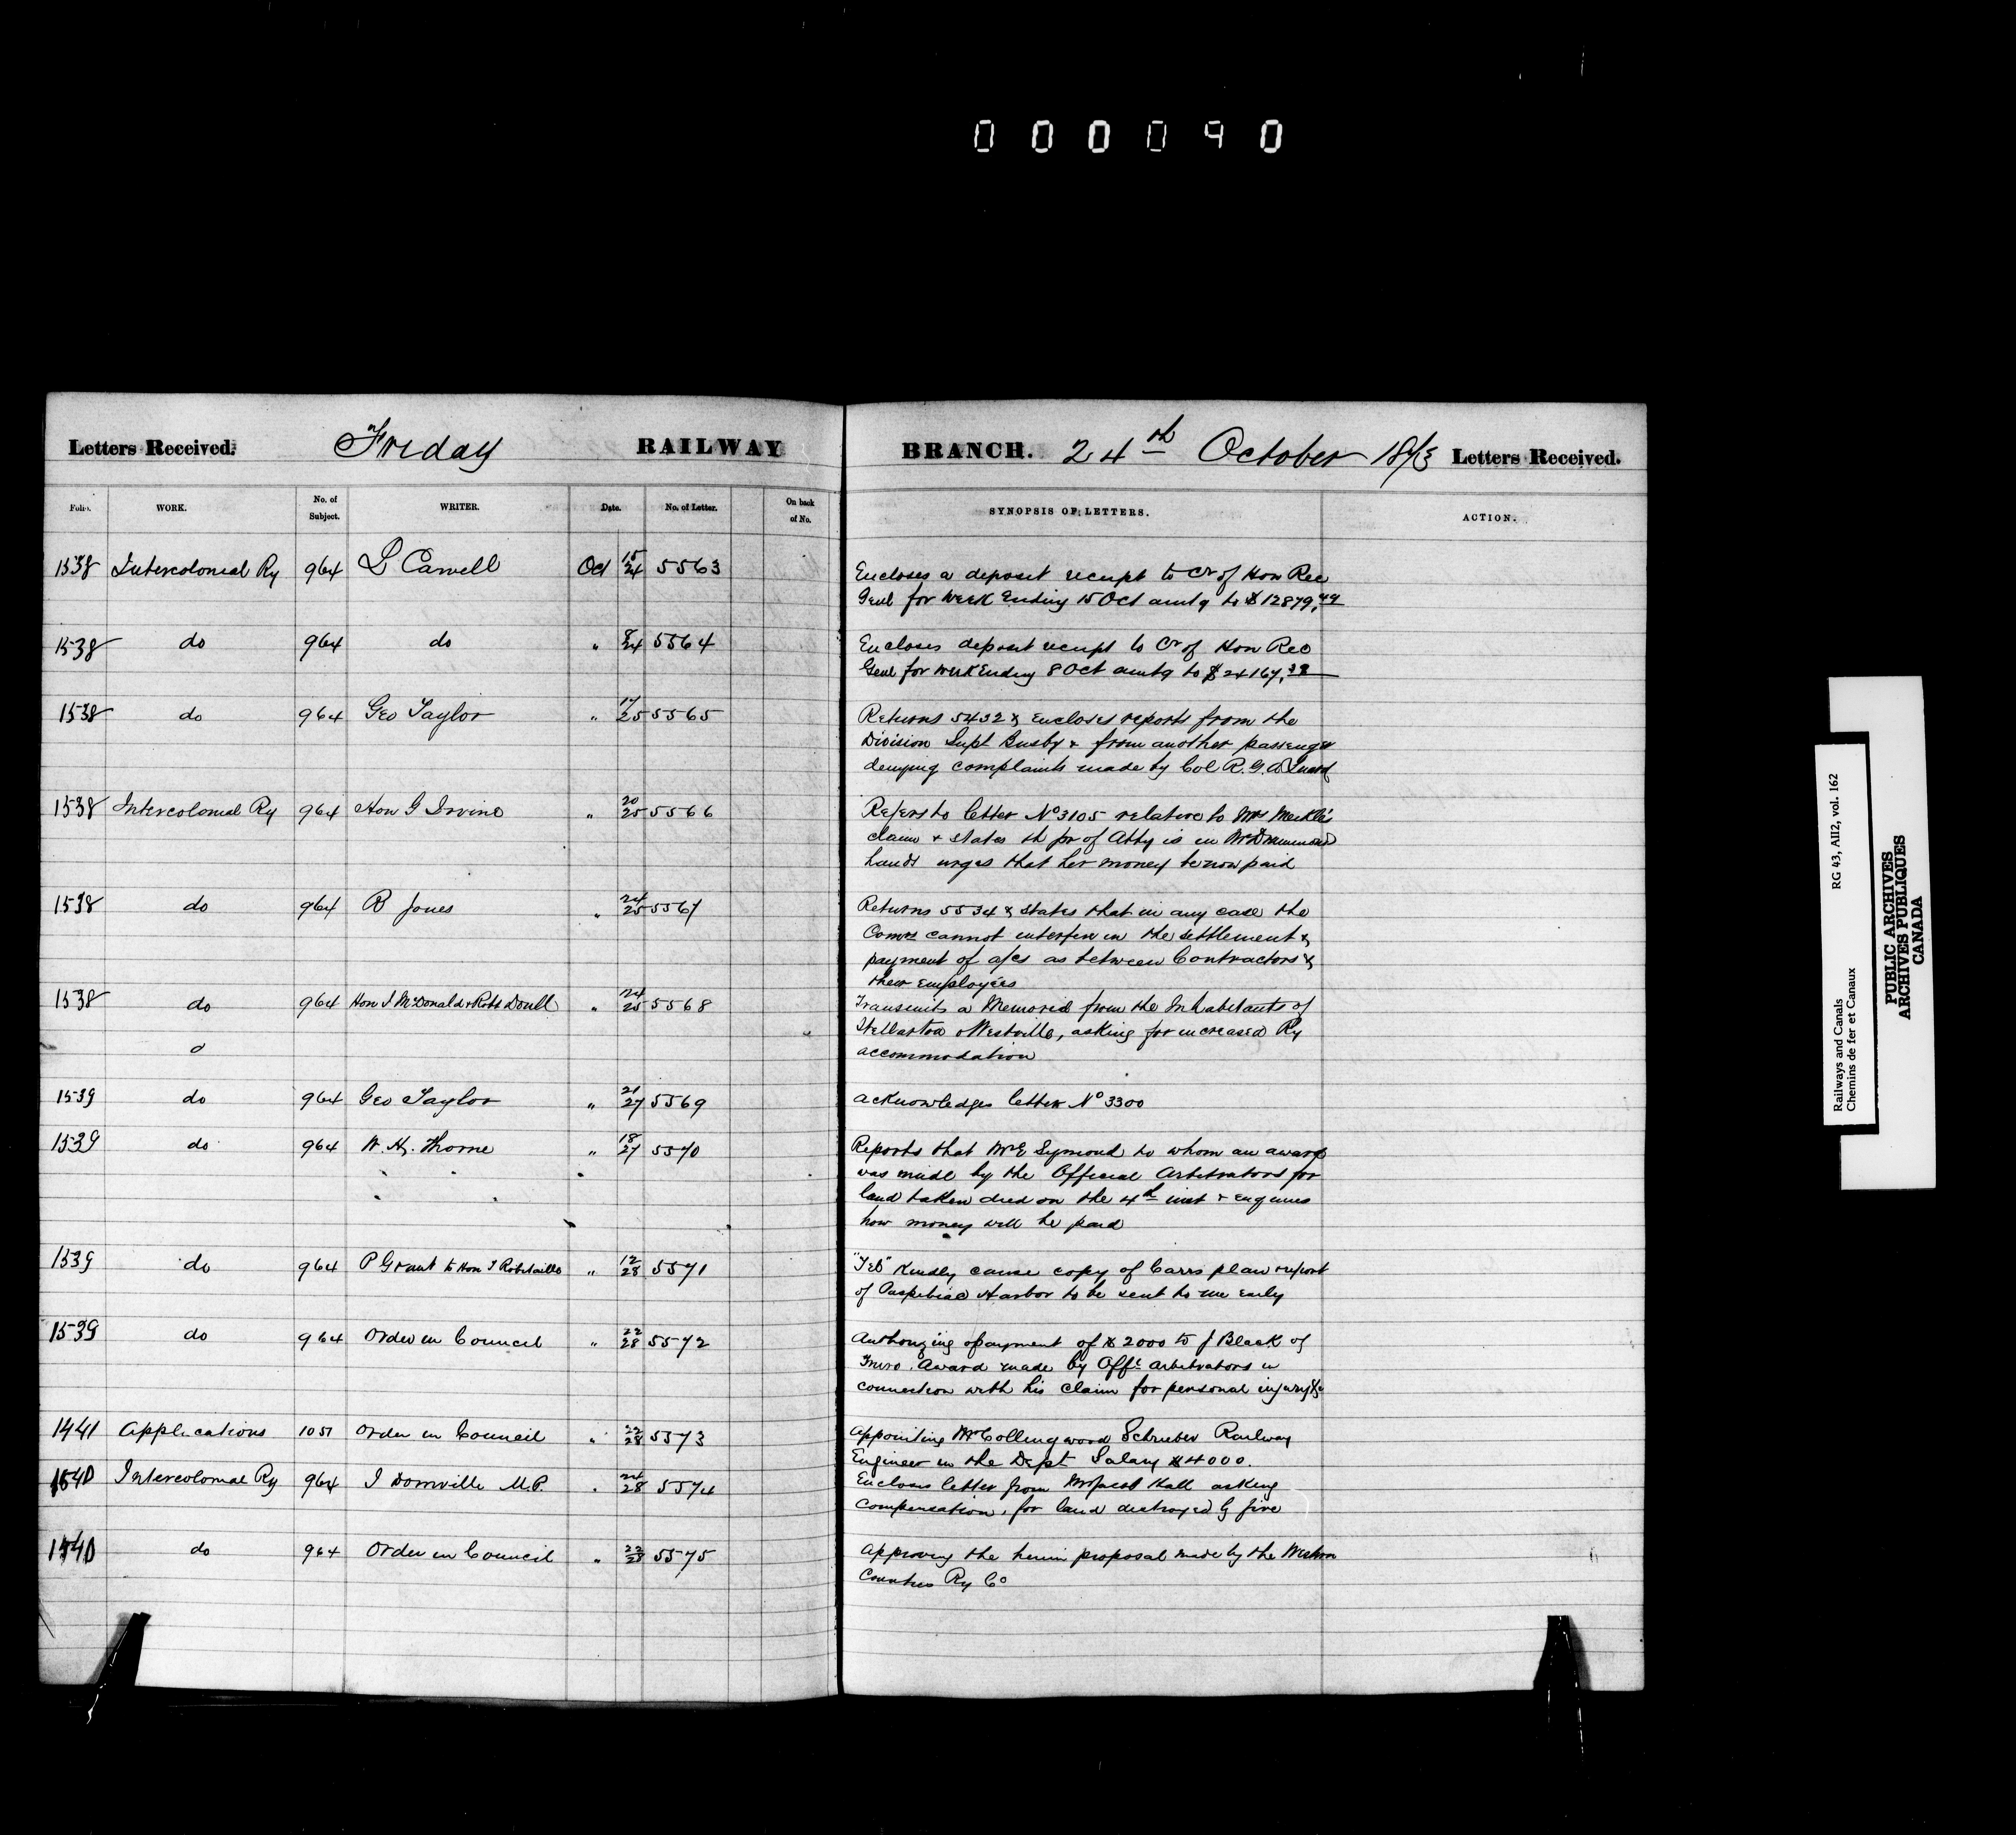 000090
Letters Received. Friday RAILWAY BRANCH. 24th October 1873 Letters Received.
Folio. WORK. No. of Subject. WRITER. Date. No. of Letter. On back of No. SYNOPSIS OF LETTERS. ACTION.
1538 Intercolonial Ry 964 L Carvell Oct 15/24 5563 Encloses a deposit receipt to Cr of Hon Rec
Genl for week Ending 15 Oct amtg to $12879,49
1538 do 964 do " 8/24 5564 Encloses deposit receipt to Cr of Hon Rec
Genl for week Ending 8 Oct amtg to $24167,38
1538 do 964 Geo Taylor " 17/25 5565 Returns 5432 & encloses reports from the
Division Supt Busby & from another passenger
denying complaints made by Col R. G. A
1538 Intercolonial Ry 964 Hon G Irvine " 20/25 5566 Refers to letter No 3105 relative to Mrs Meikle's
claim & states th pr of Atty is in Mr Drummond
hands urges that her money be now paid
1538 do 964 B Jones " 24/25 5567 Returns 5534 & states that in any case the
Comrs cannot interfere in the settlement &
payment of a/cs as between Contractors &
their Employées
1538 do 964 Hon J McDonald & Robt Doull " 24/25 5568 Transmits a Memorial from the Inhabitants of
Stellarton & Westville, asking for increased Ry
accommodation
1539 do 964 Geo Taylor " 21/27 5569 acknowledges letter No 3300
1539 do 964 W. H. Thorne " 18/27 5570 Reports that Mr E Symond to whom an award
was made by the Official Arbitrators for
land taken died on the 4th inst & enquires
how money will be paid
1539 do 964 P Grant to Hon T Robitaille " 12/28 5571 "Tel" Kindly cause copy of Carrs plan & report
of Paspebiac Harbor to be sent to me early
1539 do 964 Order in Council " 22/28 5572 Authorizing payment of $2000 to J Black of
Truro. Award made by Offl arbitrators in
connection with his claim for personal injury &c
1441 Applications 1051 Order in Council " 22/28 5573 Appointing Mr Collingwood Schrieber Railway
Engineer in the Dept Salary $4000.
1540 Intercolonial Ry 964 J Domville M.P. " 24/28 5574 Encloses letter from Mr Jacob Hall asking
compensation, for land destroyed by fire
1540 do 964 Order in Council " 22/28 5575 Approving the herein proposal made by the Western
Counties Ry Co
Railways and Canals RG 43, AII2, vol. 162
Chemins de fer et Canaux
PUBLIC ARCHIVES
ARCHIVES PUBLIQUES
CANADA